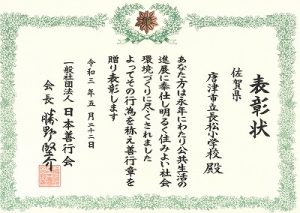 表彰状
佐賀県
唐津市立長松小学校 殿
あなた方は永年にわたり公共生活の
進展に奉仕し明るく住みよい社会
環境づくりに尽くされました
よってその行為を称え善行章を
贈り表彰します
令和三年五月二十二日
一般社団法人 日本善行会
会長 勝野堅介